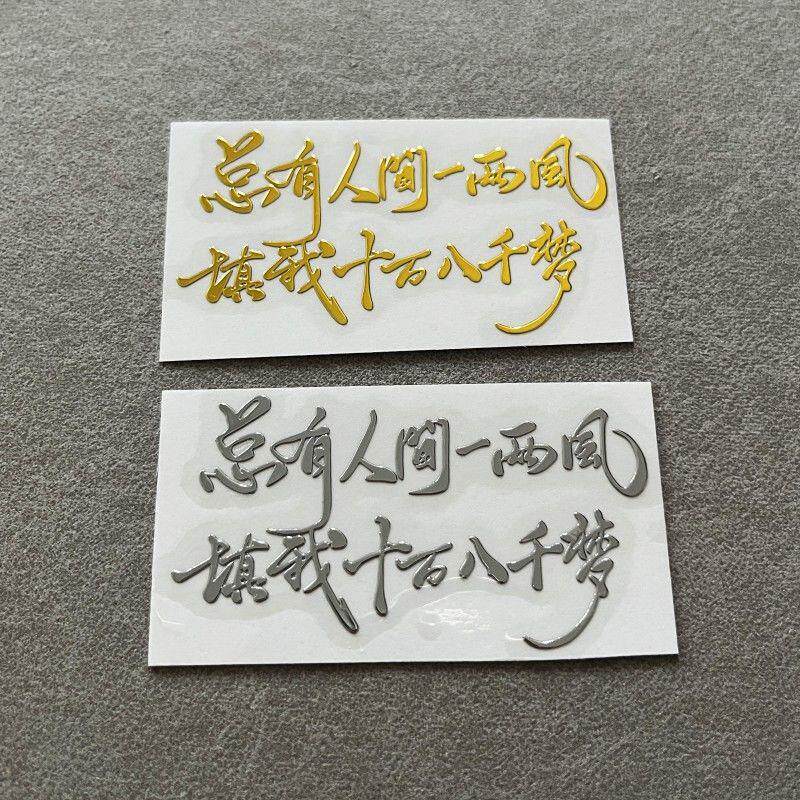 总有人間一两風
填我十万八千梦
总有人間一两風
填我十万八千梦